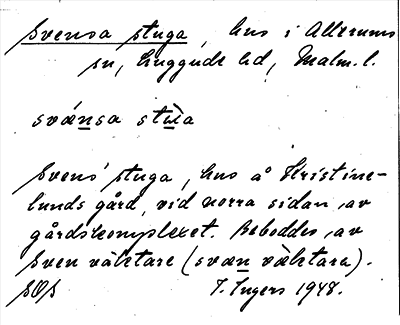 Svensa stuga, hus i Allerums
sn, Luggude hd, Malm. l.
svænsa stu̇̀a
Svens' stuga, hus å Kristine-
lunds gård, vid norra sidan av
gårdskomplexet. Beboddes av
Sven väktare (svæn væktara).
SOS I. Ingers 1948.